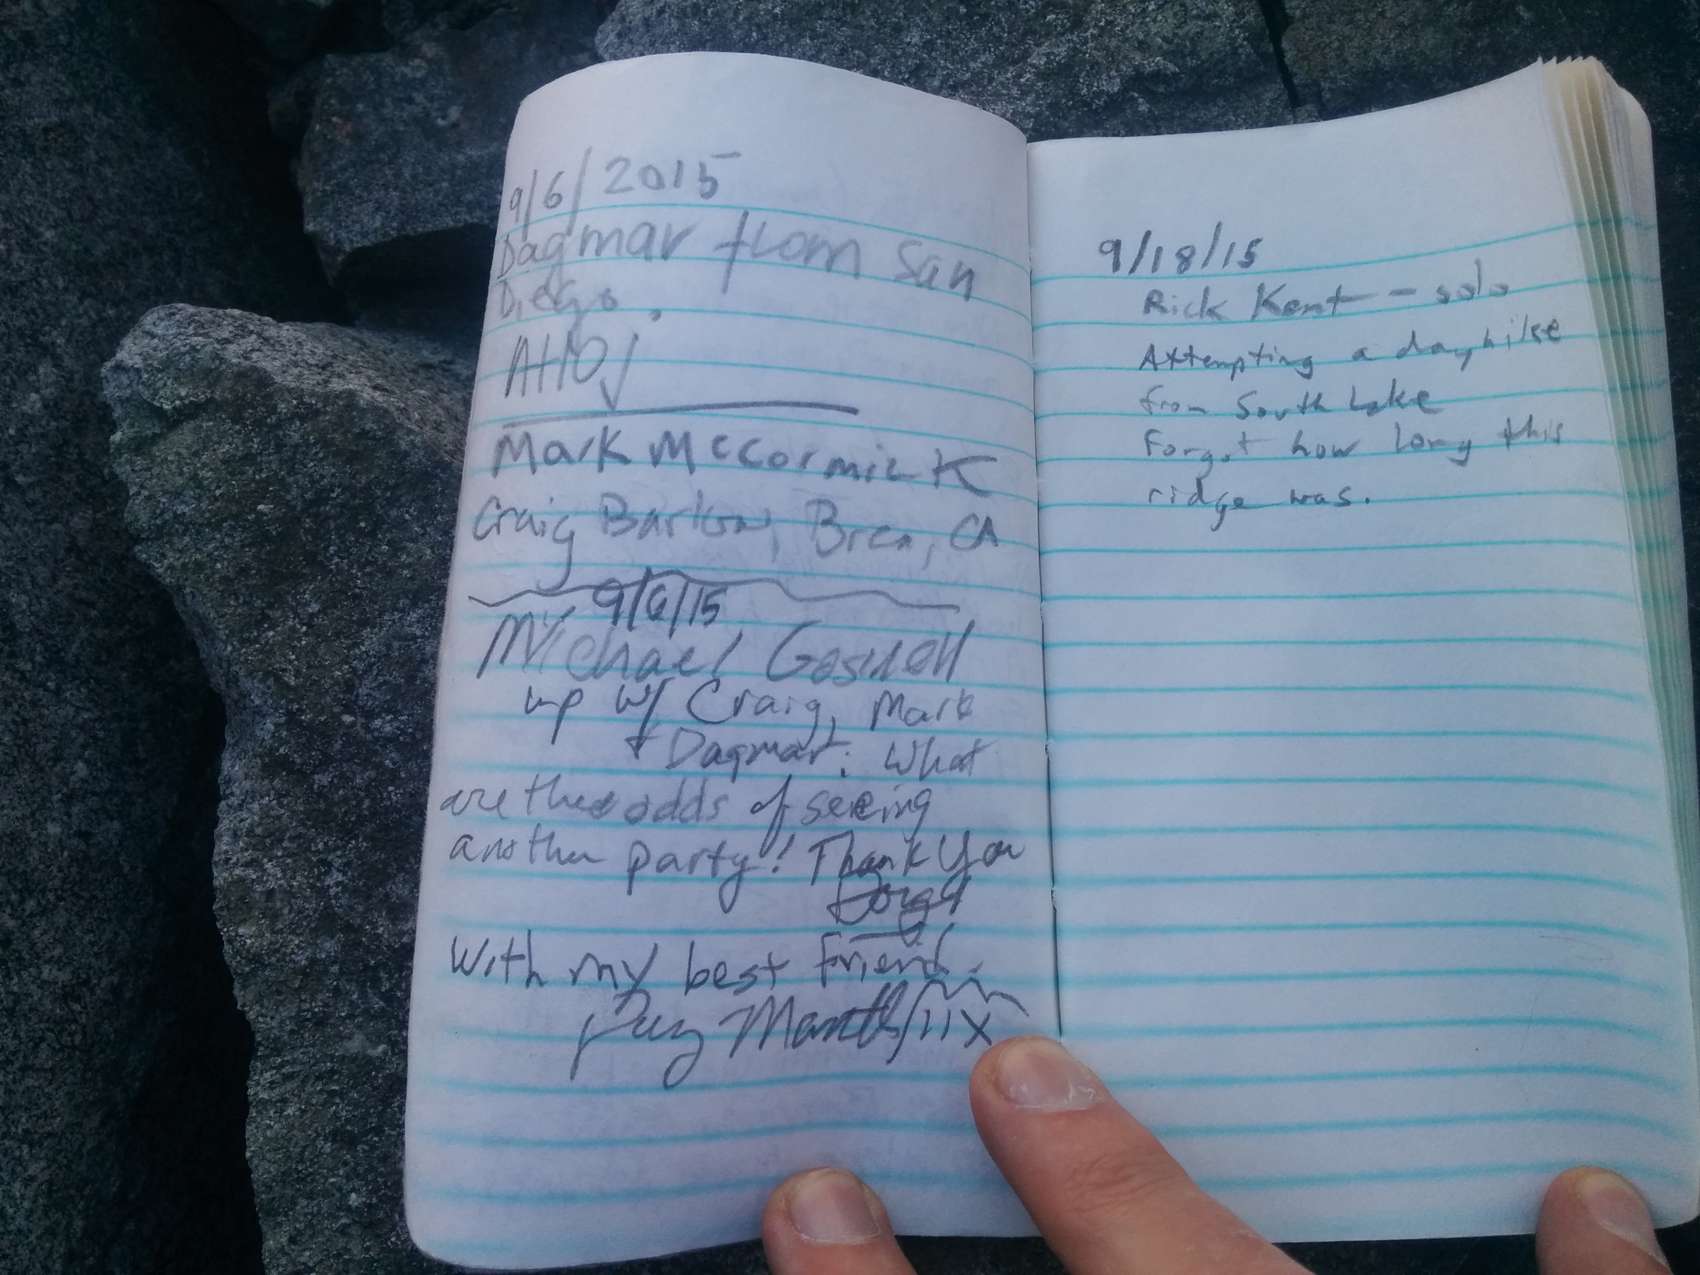 9/6/2015
Dagmar from San
Diego.
AHOJ
Mark McCormick
Craig Barlow, Brea, CA
9/6/15
Michael Gosnell
up w/ Craig, Mark
+ Dagmar. What
are the odds of seeing
another party! Thank you
With my best friend.
9/18/15
Rick Kent - solo
Attempting a dayhike
from South Lake
Forgot how long this
ridge was.